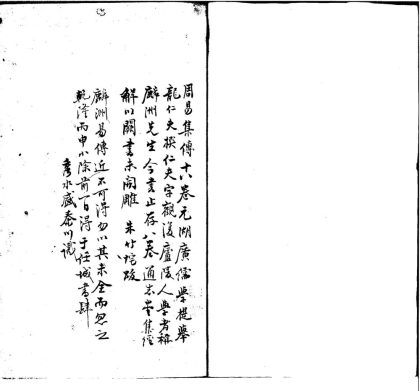 周易集傳十八卷元湖廣儒學提舉
龍仁夫撰仁夫字觀復廬陵人學者稱
麟洲先生今書止存八卷通志堂集經
解以闕書未開雕 朱竹垞跋
麟洲易傳近不可得勿以其未全而忽之
乾隆丙申小除前一日得于任城書肆
秀水盛百二識